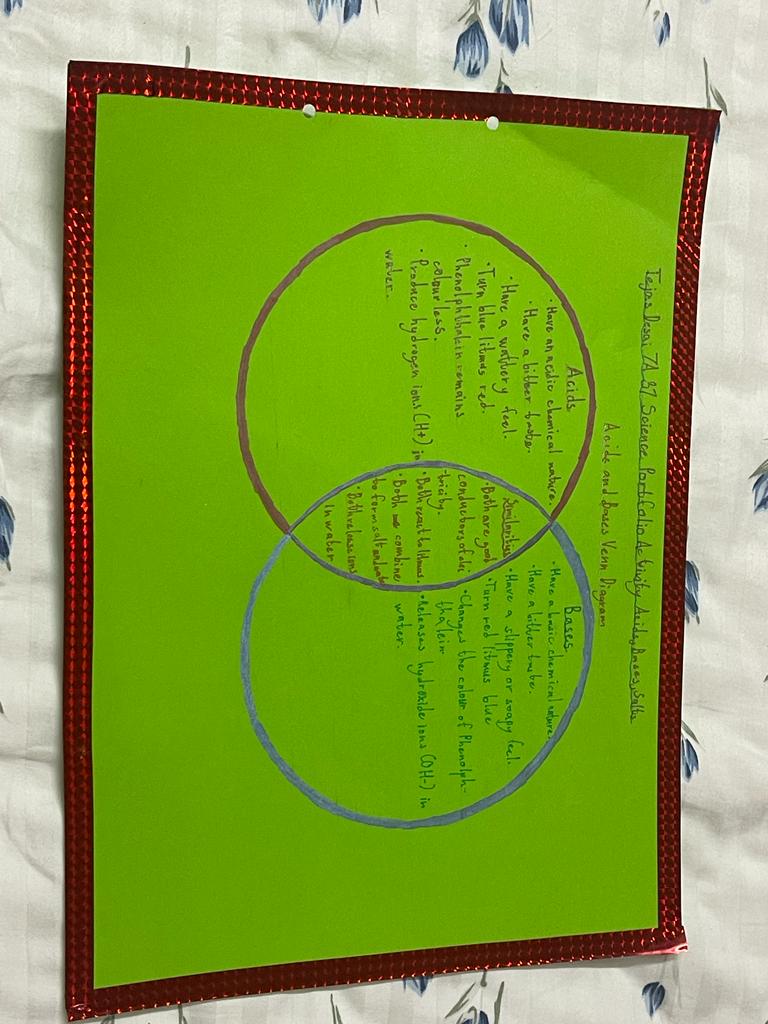 Tejas Desai 7A 37 Science Portfolio Activity Acids, Bases, Salts
Acids and Bases Venn Diagram
Acids
• Have an acidic chemical nature.
• Have a bitter taste.
• Have a wattery feel.
• Turn blue litmus red.
• Phenolphthalein remains
colourless.
• Produce hydrogen ions (H+) in
water.
Similarities
• Both are good
conductors of elec
tricity.
• Both react to litmus.
• Both combine
to form salt and
• Both release ions
in water
Bases
• Have a basic chemical nature.
• Have a bitter taste.
• Have a slippery or soapy feel.
• Turn red litmus blue
• Changes the colour of Phenolph-
thalein
• Releases hydroxide ions (OH-) in
water.